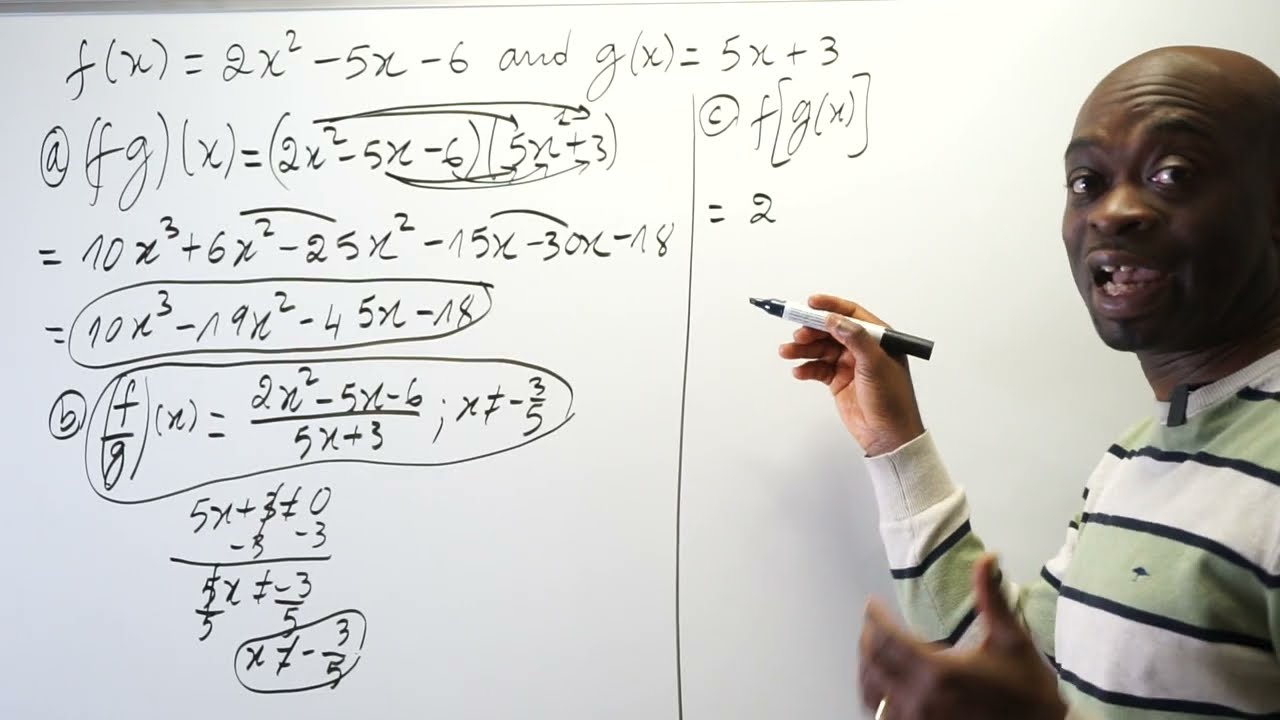 f(x) = 2x² - 5x - 6 and g(x) = 5x + 3
ⓐ (fg)(x) = (2x² - 5x - 6)(5x + 3)
= 10x³ + 6x² - 25x² - 15x - 30x - 18
= 10x³ - 19x² - 45x - 18
ⓑ (f/g)(x) = (2x² - 5x - 6)/(5x + 3) ; x ≠ -3/5
5x + 3 ≠ 0
-3 -3
5x/5 ≠ -3/5
x ≠ -3/5
ⓒ f[g(x)]
= 2